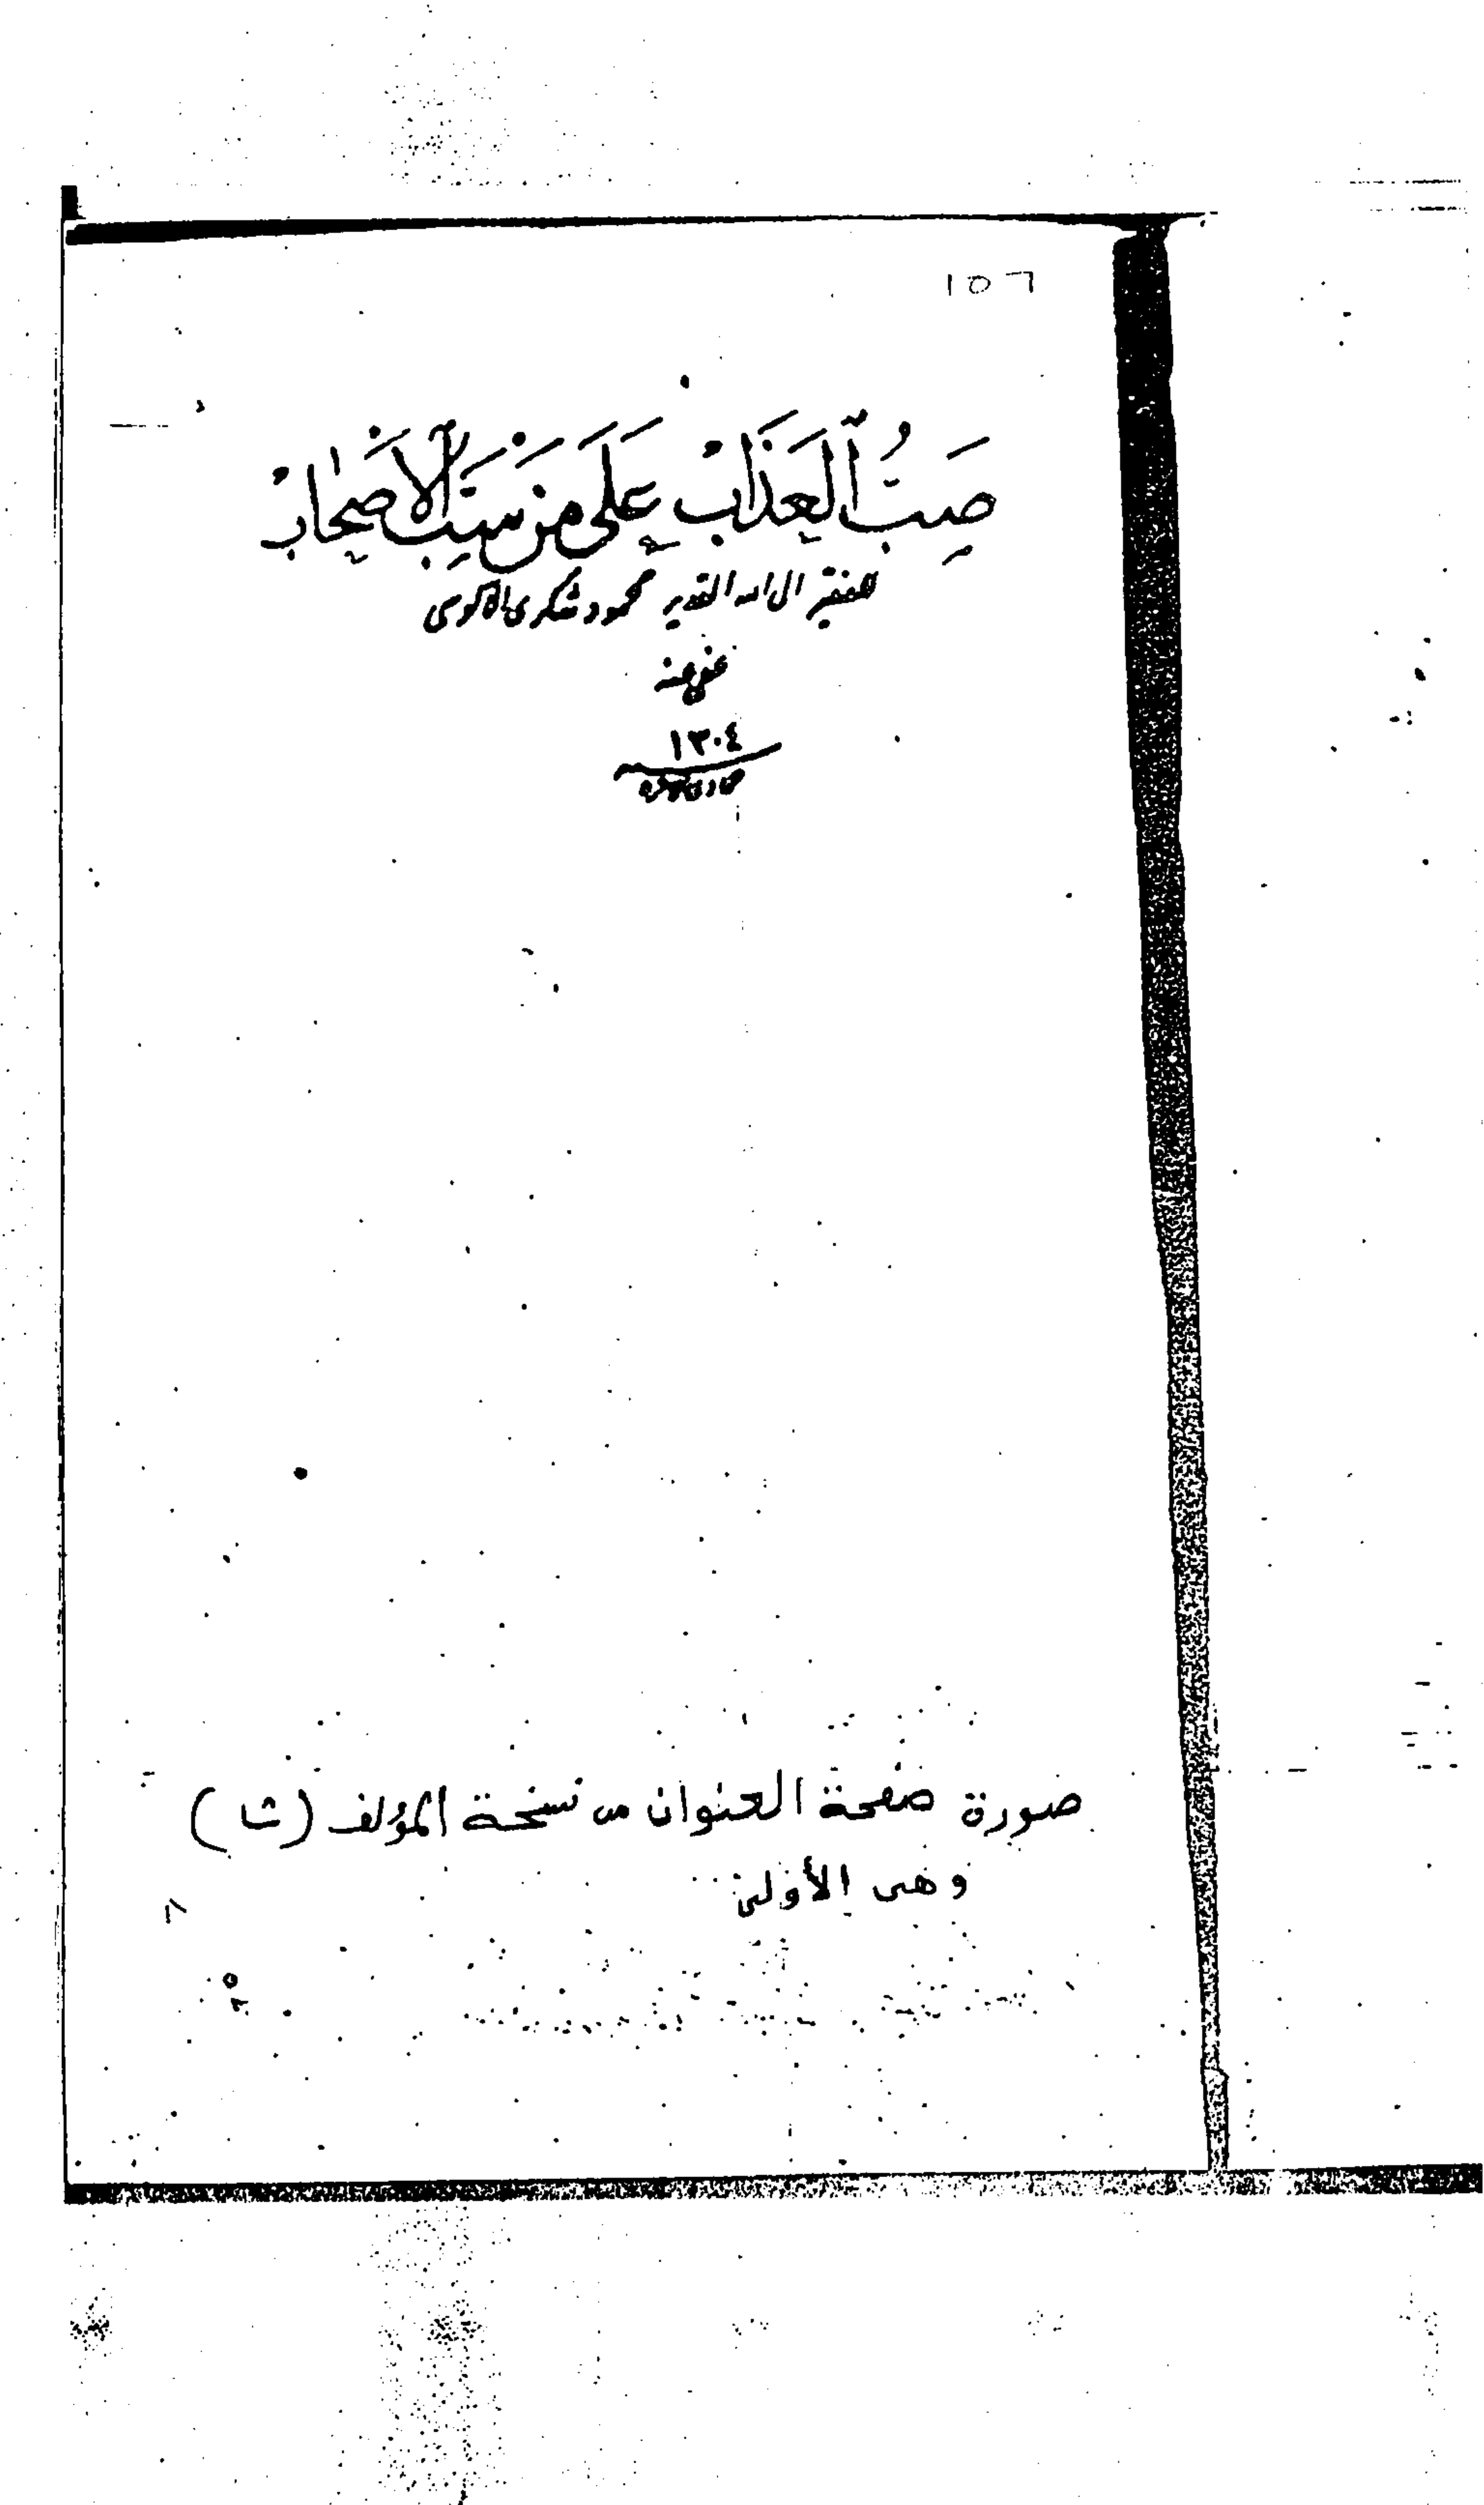 ١٥٦
صَبُّ ٱلعَذَابْ عَلَى مَنْ سَبَّ الأَصْحَابْ
للفقير الى الله القدير محمود شكرى الآلوسى
عفي عنه
١٣٠٤
صورة صفحة العنوان من نسخة المؤلف (شا)
وهى الأولى